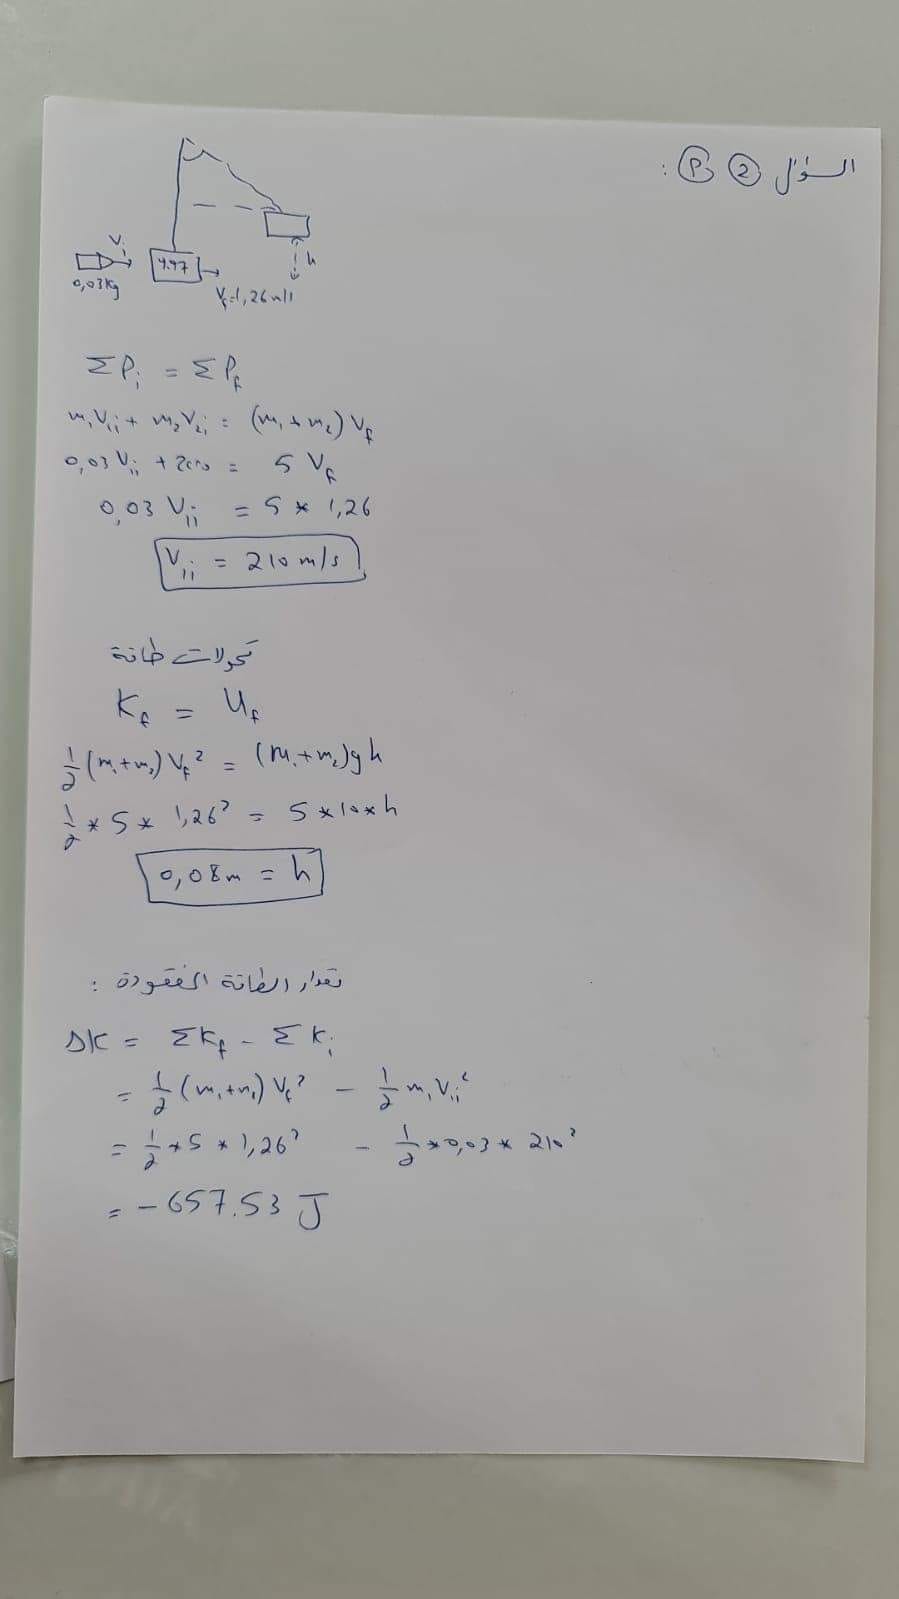 السؤال ② ⓟ :
Vᵢ
0,03kg
4.97
h
V_f=1,26 m/s
ΣPᵢ = ΣP_f
m₁V₁ᵢ + m₂V₂ᵢ = (m₁+m₂) V_f
0,03 V₁ᵢ + zero = 5 V_f
0,03 V₁ᵢ = 5 * 1,26
V₁ᵢ = 210 m/s
تحولات طاقة
K_f = U_f
½(m₁+m₂) V_f² = (m₁+m₂)gh
½ * 5 * 1,26² = 5*10*h
0,08m = h
مقدار الطاقة المفقودة :
ΔK = ΣK_f - ΣKᵢ
= ½(m₁+m₂) V_f² - ½ m₁V₁ᵢ²
= ½ * 5 * 1,26² - ½ * 0,03 * 210²
= - 657.53 J